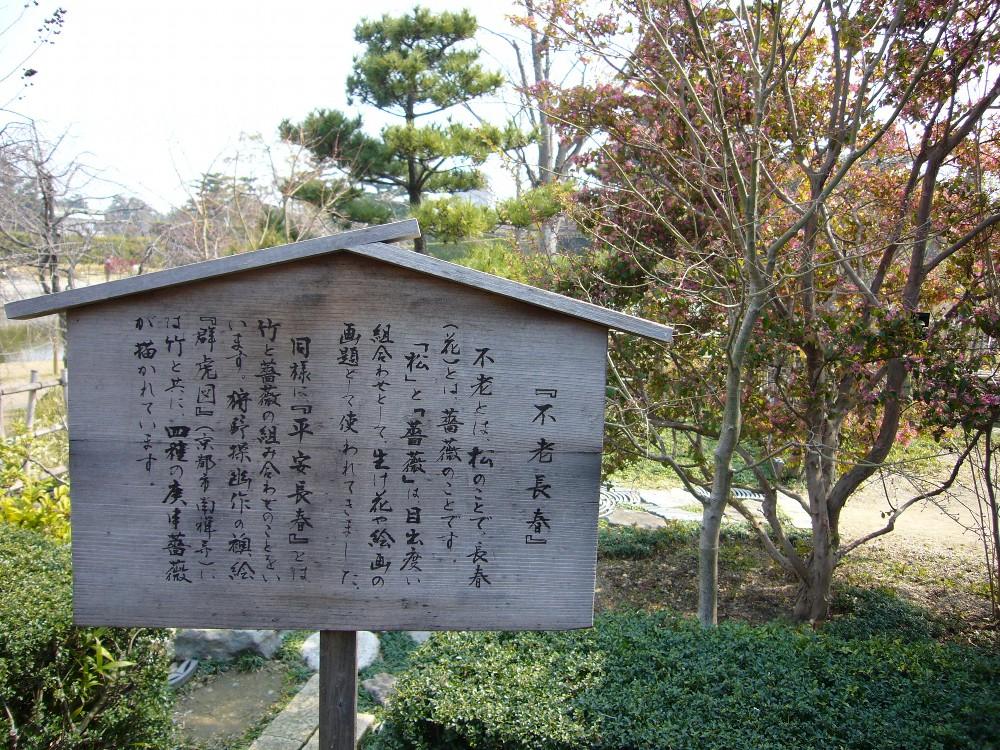 『不老長春』
不老とは、松のことで、長春
(花)とは、薔薇のことです。
「松」と「薔薇」は目出度い
組合わせとして、生け花や絵画の
画題として使われてきました。
同様に『平安長春』とは
竹と薔薇の組み合わせのことをい
います。狩野探幽作の襖絵
『群虎図』(京都市南禅寺)に
は竹と共に、四種の庚申薔薇
が描かれています。